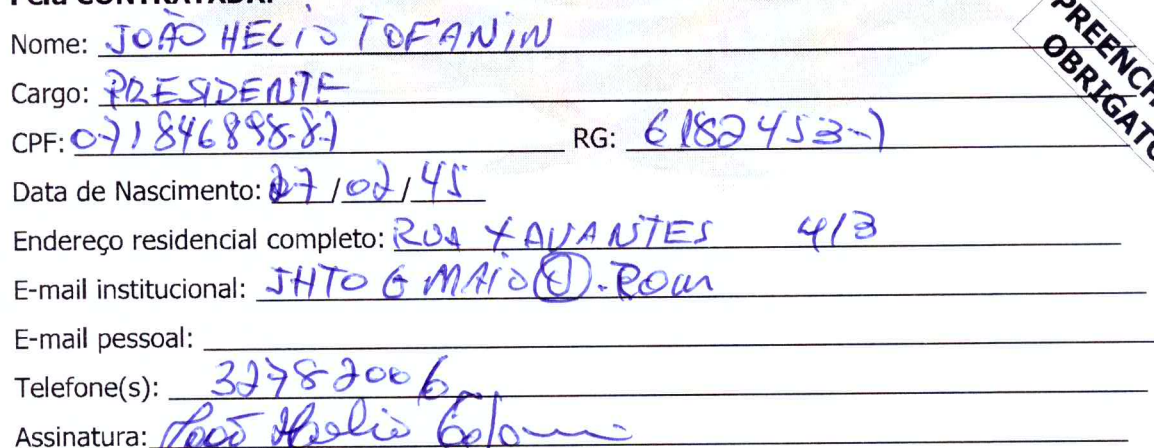 Pela CONTRATADA:
Nome: JOÃO HELIO TOFANIN
Cargo: PRESIDENTE
CPF: 071846898-87 RG: 6182453-7
Data de Nascimento: 27/02/45
Endereço residencial completo: RUA XAVANTES 413
E-mail institucional: JHTO G
E-mail pessoal:
Telefone(s): 32782006
Assinatura: João Helio
PREENCH
OBRIGATO